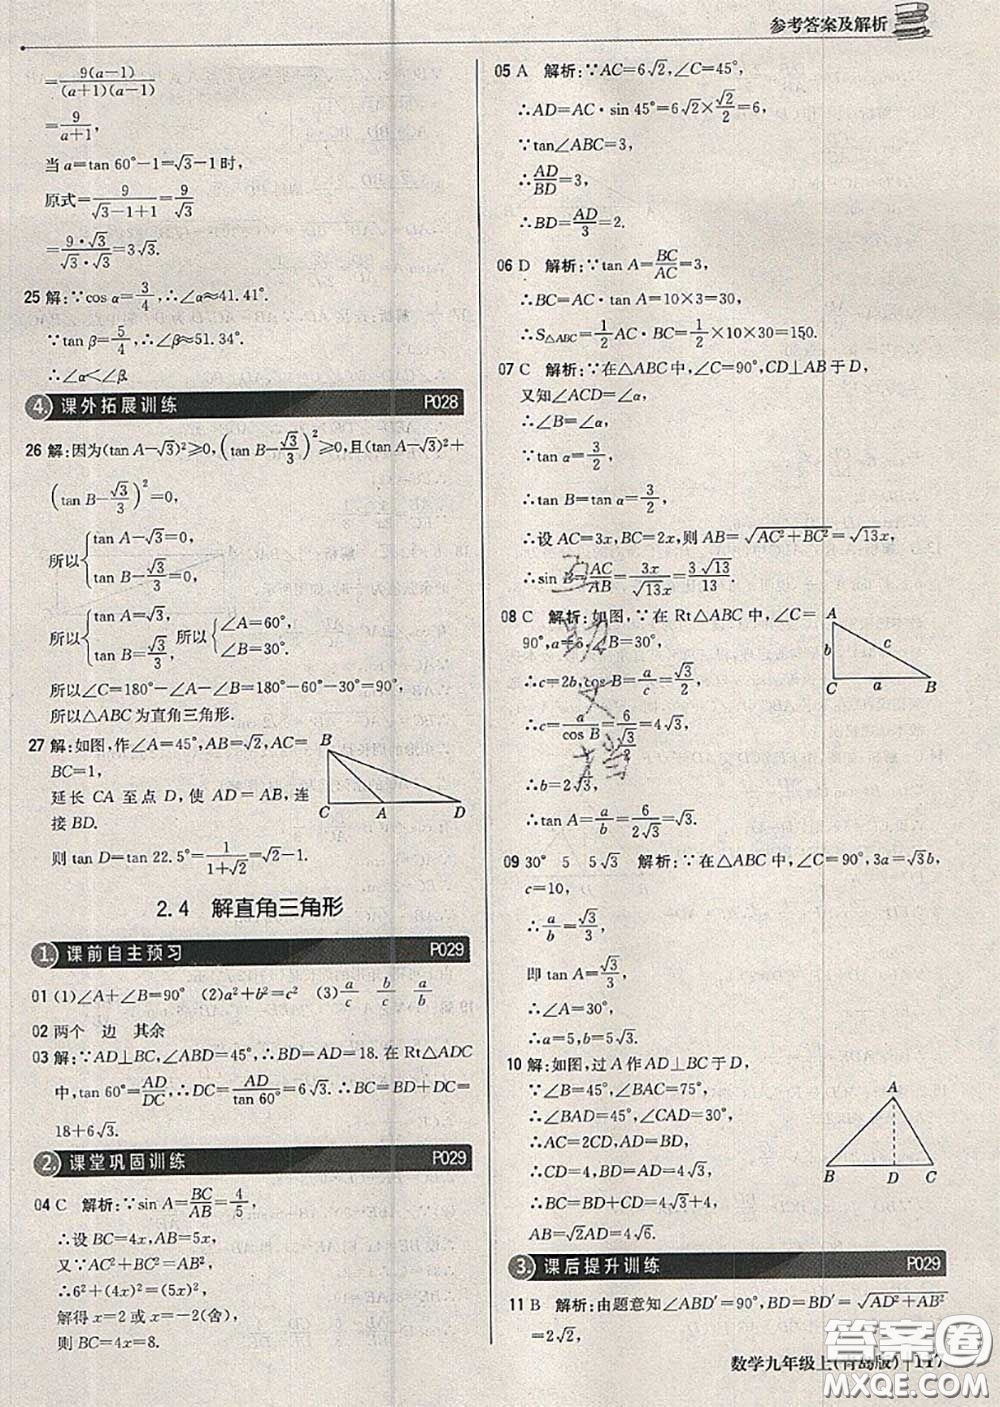 参考答案及解析
=9(a-1)/(a+1)(a-1)
=9/(a+1),
当 a=tan 60°-1=√3-1时,
原式=9/(√3-1+1)=9/√3
=9·√3/(√3·√3)=3√3.
25 解:∵cos α=3/4,∴∠α≈41.41°.
∵tan β=5/4,∴∠β≈51.34°.
∴∠α<∠β.
4. 课外拓展训练 P028
26 解:因为(tan A-√3)²≥0,(tan B-√3/3)²≥0,且(tan A-√3)²+
(tan B-√3/3)²=0,
所以{tan A-√3=0, tan B-√3/3=0,
所以{tan A=√3, tan B=√3/3. 所以{∠A=60°, ∠B=30°.
所以∠C=180°-∠A-∠B=180°-60°-30°=90°,
所以△ABC 为直角三角形.
27 解:如图,作∠A=45°,AB=√2,AC=
BC=1,
延长 CA 至点 D,使 AD=AB,连
接 BD.
则 tan D=tan 22.5°=1/(1+√2)=√2-1.
B
C A D
2.4 解直角三角形
1. 课前自主预习 P029
01 (1)∠A+∠B=90° (2)a²+b²=c² (3)a/c b/c a/b
02 两个 边 其余
03 解:∵AD⊥BC,∠ABD=45°,∴BD=AD=18. 在 Rt△ADC
中,tan 60°=AD/DC,∴DC=AD/tan 60°=6√3.∴BC=BD+DC=
18+6√3.
2. 课堂巩固训练 P029
04 C 解析:∵sin A=BC/AB=4/5,
∴设 BC=4x,AB=5x,
又∵AC²+BC²=AB²,
∴6²+(4x)²=(5x)²,
解得 x=2 或 x=-2(舍),
则 BC=4x=8.
05 A 解析:∵AC=6√2,∠C=45°,
∴AD=AC·sin 45°=6√2×√2/2=6,
∵tan∠ABC=3,
∴AD/BD=3,
∴BD=AD/3=2.
06 D 解析:∵tan A=BC/AC=3,
∴BC=AC·tan A=10×3=30,
∴S△ABC=1/2AC·BC=1/2×10×30=150.
07 C 解析:∵在△ABC 中,CD⊥AB 于 D,
又知∠ACD=∠α,
∴∠B=∠α,
∵tan α=3/2,
∴tan B=tan α=3/2,
∴设 AC=3x,BC=2x,则 AB=√(AC²+BC²)=√13x,
∴sin B=AC/AB=3x/√13x=3√13/13.
08 C 解析:如图,∵在 Rt△ABC 中,∠C=
90°,a=6,∠B=30°,
∴c=2b,cos B=a/c=√3/2,
∴c=a/cos B=6/(√3/2)=4√3,
∴b=2√3,
∴tan A=a/b=6/2√3=√3.
A
b
C a B
09 30° 5 5√3 解析:∵在△ABC 中,∠C=90°,3a=√3b,
c=10,
∴a/b=√3/3,
即 tan A=√3/3,
∴∠A=30°,
∴a=5,b=5√3.
10 解:如图,过 A 作 AD⊥BC 于 D,
∵∠B=45°,∠BAC=75°,
∴∠BAD=45°,∠CAD=30°,
∴AC=2CD,AD=BD,
∵AC=8,
∴CD=4,AD=4√3,
∴BC=BD+CD=4√3+4,
AB=√2AD=4√6.
A
B D C
3. 课后提升训练 P029
11 B 解析:由题意知∠ABD′=90°,BD=BD′=√(AD²+AB²)
=2√2,
数学九年级上(青岛版) 117
答案圈
MXQE.COM